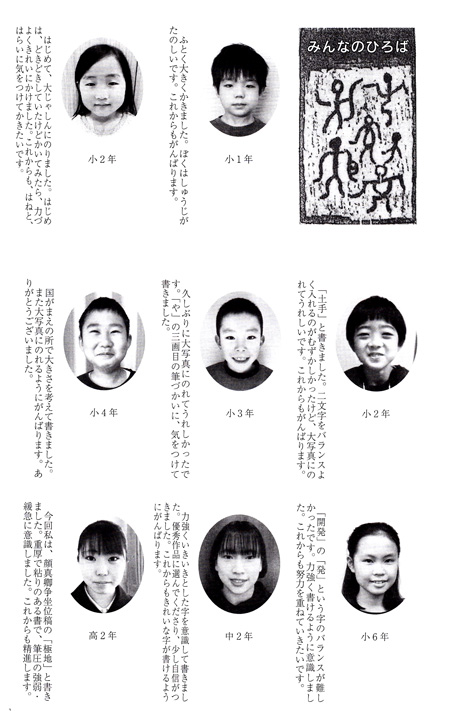 みんなのひろば
小1年
ふとく大きくかきました。ぼくはしゅうじが
たのしいです。これからもがんばります。
小2年
はじめて、大じゃしんにのりました。はじめ
は、どきどきしていたけどかいてみたら、力づ
よくきれいにかけました。これからも、はねと、
はらいに気をつけてかきたいです。
小2年
「土手」と書きました。二文字をバランスよ
く入れるのがむずかしかったけど、大写真にの
れてうれしいです。これからもがんばります。
小3年
久しぶりに大写真にのれてうれしかったで
す。「や」の三画目の筆づかいに、気をつけて
書きました。
小4年
国がまえの所で大きさを考えて書きました。
また大写真にのれるようにがんばります。あ
りがとうございました。
小6年
「開発」の「発」という字のバランスが難し
かったです。力強く書けるように意識しまし
た。これからも努力を重ねていきたいです。
中2年
力強くいきいきとした字を意識して書きまし
た。優秀作品に選んでくださり、少し自信がつ
きました。これからもきれいな字が書けるよう
にがんばります。
高2年
今回私は、顔真卿争坐位稿の「極地」と書き
ました。重厚で粘りのある書で、筆圧の強弱・
緩急に意識しました。これからも精進します。